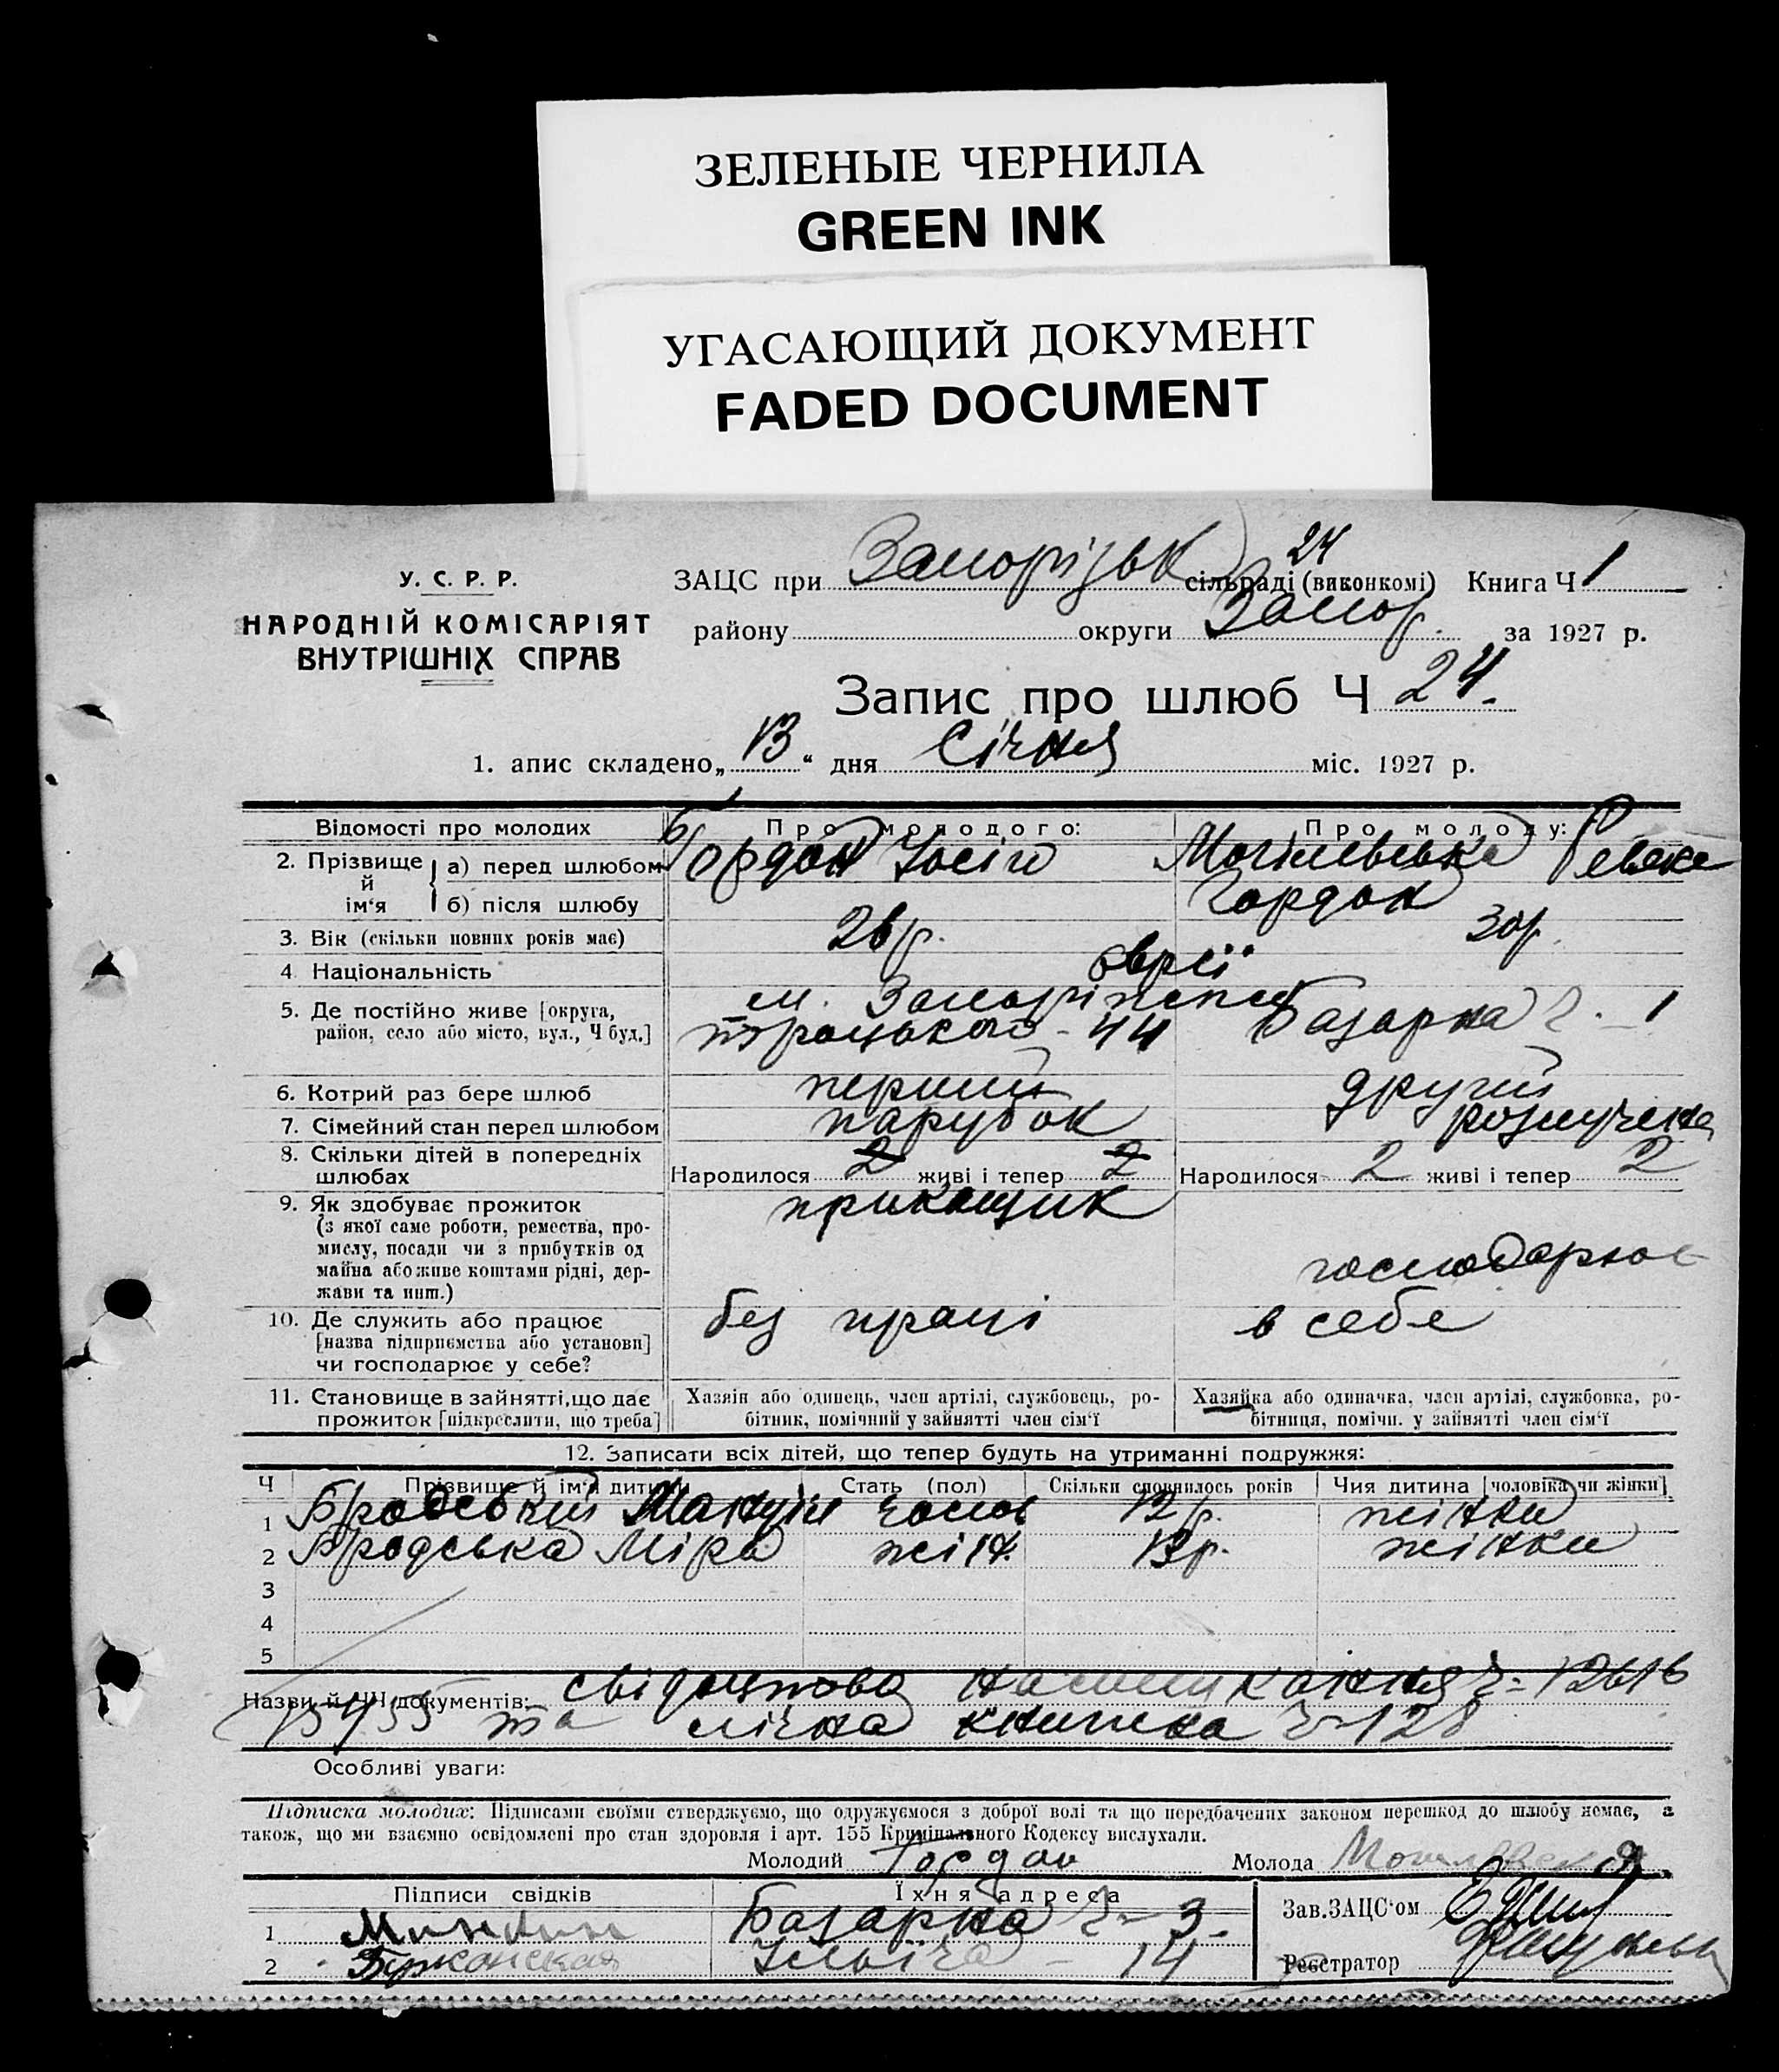 ЗЕЛЕНЫЕ ЧЕРНИЛА
GREEN INK
УГАСАЮЩИЙ ДОКУМЕНТ
FADED DOCUMENT
У. С. Р. Р.
НАРОДНІЙ КОМІСАРІЯТ
ВНУТРІШНІХ СПРАВ
24
ЗАЦС при Запорізьк сільраді (виконкомі) Книга Ч 1
району округи Запор. за 1927 р.
Запис про шлюб Ч 24.
1. апис складено „13“ дня Січня міс. 1927 р.
Відомості про молодих Про молодого: Про молоду:
2. Прізвище й ім‘я а) перед шлюбом Гордон Йосіп Могілевська Ревека
б) після шлюбу Гордон
3. Вік (скільки повних років має) 26 р. 30 р.
4 Національність євреї
5. Де постійно живе [округа, район, село або місто, вул., Ч буд.] м. Запоріжжя Троцького - 44 Базарна Ч. - 1
6. Котрий раз бере шлюб перший другий
7. Сімейний стан перед шлюбом парубок розлучена
8. Скільки дітей в попередніх шлюбах Народилося 2 живі і тепер 2 Народилося 2 живі і тепер 2
9. Як здобуває прожиток прикащик господарює
(з якої саме роботи, ремества, про-
мислу, посади чи з прибутків од
майна або живе коштами рідні, дер-
жави та инш.)
10. Де служить або працює без праці в себе
[назва підприємства або установи]
чи господарює у себе?
11. Становище в зайнятті, що дає прожиток [підкреслити, що треба] Хазяїн або одинець, член артілі, службовець, ро-
бітник, помічний у зайнятті член сім‘ї
Хазяйка або одиначка, член артілі, службовка, ро-
бітниця, помічн. у зайнятті член сім‘ї
12. Записати всіх дітей, що тепер будуть на утриманні подружжя:
Ч Прізвище й ім‘я дитини Стать (пол) Скільки сповнилось років Чия дитина [чоловіка чи жінки]
1 Бродський Мануіл чолов 12 р. жінки
2 Бродська Міра жін. р. жінки
3
4
5
Назви й ЧЧ документів: свідоцтво Ч - 12616
та книжка Ч - 128
Особливі уваги:
Підписка молодих: Підписами своїми стверджуємо, що одружуємося з доброї волі та що передбачених законом перешкод до шлюбу немає, а
також, що ми взаємно освідомлені про стан здоровля і арт. 155 Кримінального Кодексу вислухали.
Молодий Гордон Молода
Підписи свідків Їхня адреса
1 Минкин Базарна Ч - 3.
2 Ильіча - 14
Зав. ЗАЦС‘ом
Реєстратор